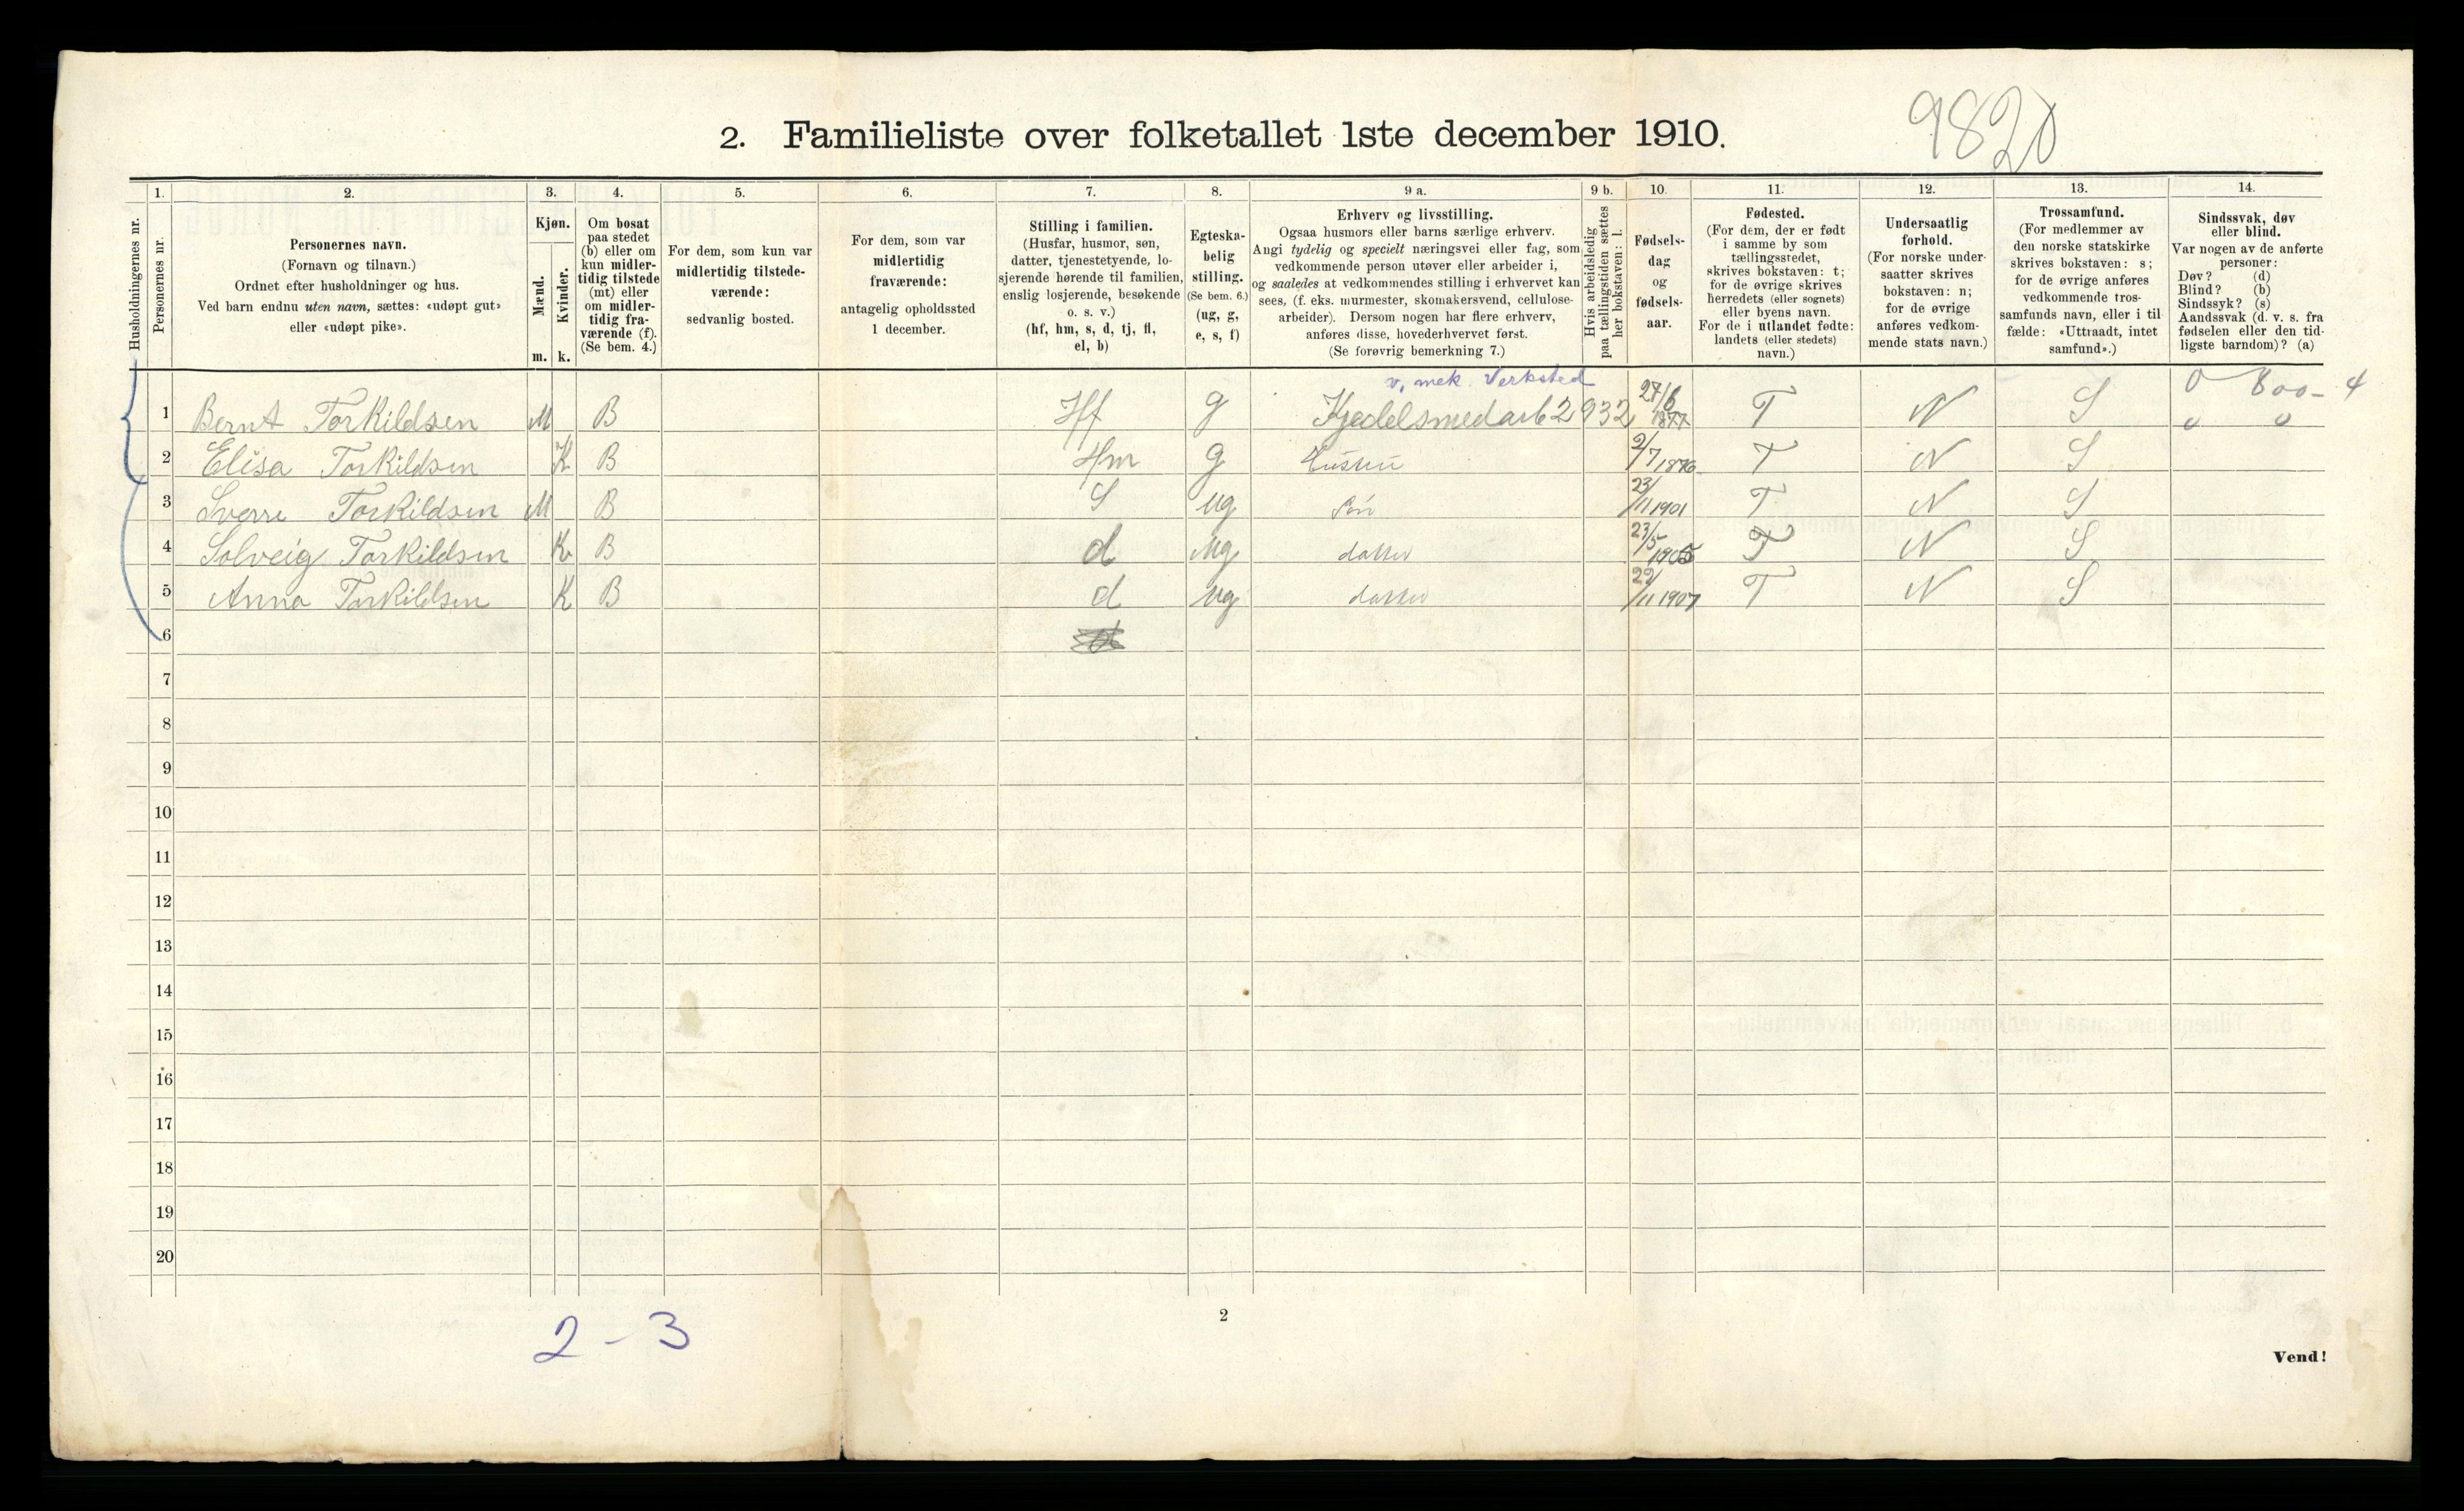 9820
2. Familieliste over folketallet 1ste december 1910.
Husholdningernes nr.
1.
Personernes nr.
2.
Personernes navn.
(Fornavn og tilnavn.)
Ordnet efter husholdninger og hus.
Ved barn endnu uten navn, sættes: «udøpt gut»
eller «udøpt pike».
3.
Kjøn.
Mænd.
Kvinder.
m. k.
4.
Om bosat
paa stedet
(b) eller om
kun midler-
tidig tilstede
(mt) eller
om midler-
tidig fra-
værende (f).
(Se bem. 4.)
5.
For dem, som kun var
midlertidig tilstede-
værende:
sedvanlig bosted.
6.
For dem, som var
midlertidig
fraværende:
antagelig opholdssted
1 december.
7.
Stilling i familien.
(Husfar, husmor, søn,
datter, tjenestetyende, lo-
sjerende hørende til familien,
enslig losjerende, besøkende
o. s. v.)
(hf, hm, s, d, tj, fl,
el, b)
8.
Egteska-
belig
stilling.
(Se bem. 6.)
(ug, g,
e, s, f)
9 a.
Erhverv og livsstilling.
Ogsaa husmors eller barns særlige erhverv.
Angi tydelig og specielt næringsvei eller fag, som
vedkommende person utøver eller arbeider i,
og saaledes at vedkommendes stilling i erhvervet kan
sees, (f. eks. murmester, skomakersvend, cellulose-
arbeider). Dersom nogen har flere erhverv,
anføres disse, hovederhvervet først.
(Se forøvrig bemerkning 7.)
9 b.
Hvis arbeidsledig
paa tællingstiden sættes
her bokstaven: l.
10.
Fødsels-
dag
og
fødsels-
aar.
11.
Fødested.
(For dem, der er født
i samme by som
tællingsstedet,
skrives bokstaven: t;
for de øvrige skrives
herredets (eller sognets)
eller byens navn.
For de i utlandet fødte:
landets (eller stedets)
navn.)
12.
Undersaatlig
forhold.
(For norske under-
saatter skrives
bokstaven: n;
for de øvrige
anføres vedkom-
mende stats navn.)
13.
Trossamfund.
(For medlemmer av
den norske statskirke
skrives bokstaven: s;
for de øvrige anføres
vedkommende tros-
samfunds navn, eller i til-
fælde: «Uttraadt, intet
samfund».)
14.
Sindssvak, døv
eller blind.
Var nogen av de anførte
personer:
Døv? (d)
Blind? (b)
Sindssyk? (s)
Aandssvak (d. v. s. fra
fødselen eller den tid-
ligste barndom)? (a)
v. mek. Verksted
0 800 - 4
1 Bernt Torkildsen M B Hf g Kjedelsmedarb 2932 27/6 1877 T N S 0 0
2 Elisa Torkildsen K B Hm g Hustru 2/7 1876 T N S
3 Sverre Torkildsen M B S ug Søn 23/11 1901 T N S
4 Solveig Torkildsen K B d ug datter 23/5 1905 T N S
5 Anna Torkildsen K B d ug datter 22/11 1907 T N S
6
7
8
9
10
11
12
13
14
15
16
17
18
19
20
2
2 - 3
Vend!